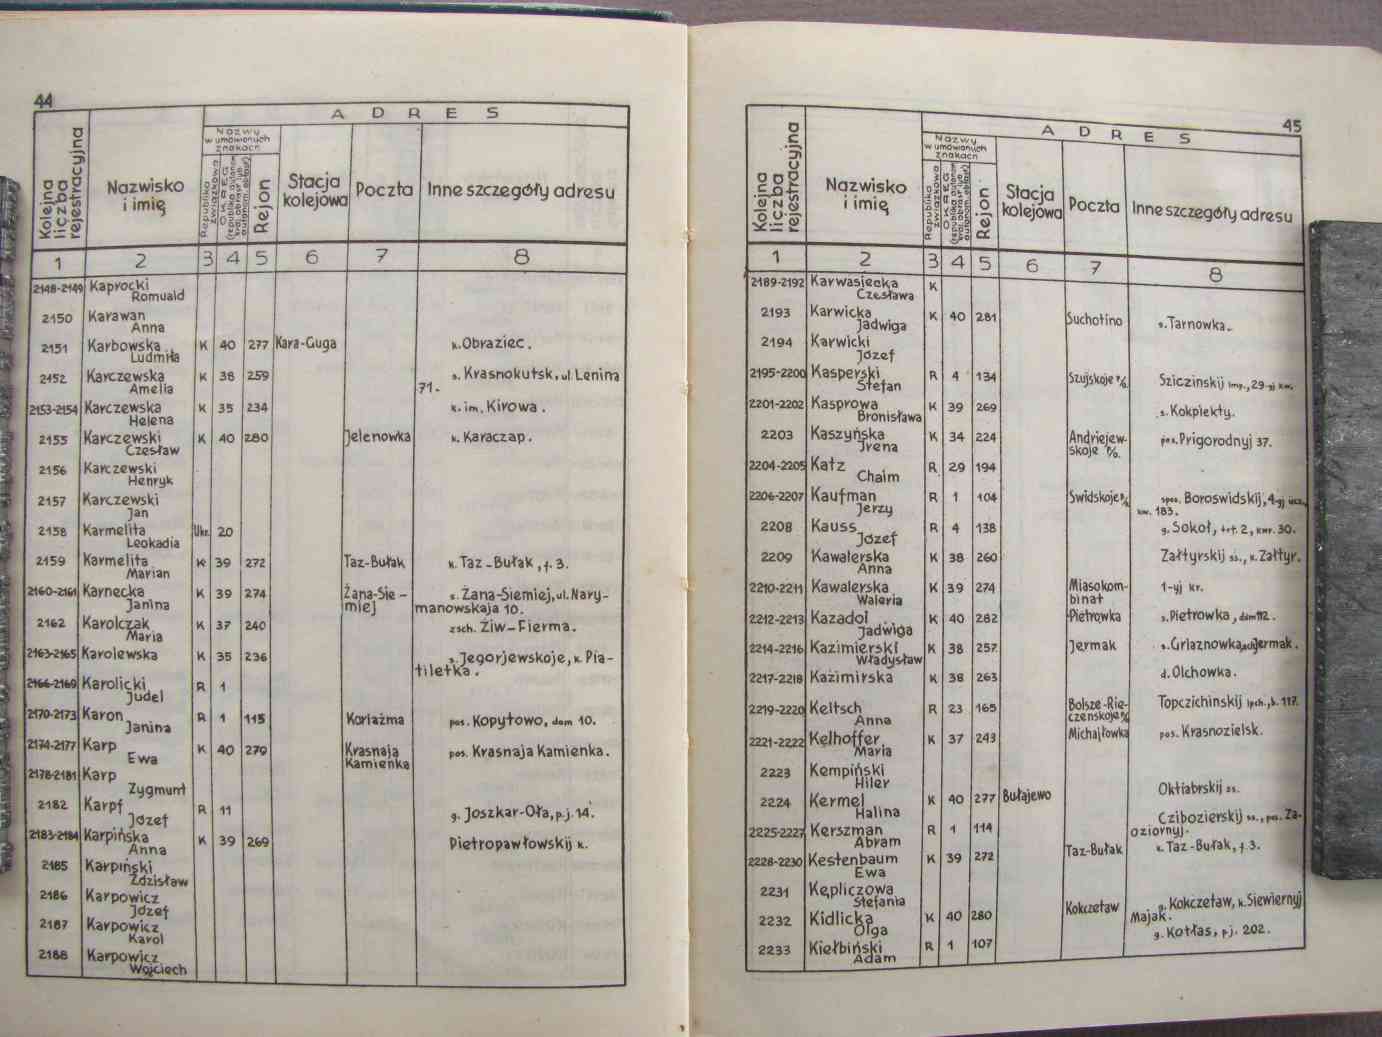 44
A D R E S
Kolejna liczba rejestracyjna
Nazwisko i imię
Nazwy w umówionych znakach
Republika związkowa
OKRĘG (republika autonom. kraj, obłast' lub autonom. obłast')
Rejon
Stacja kolejowa
Poczta
Inne szczegóły adresu
1 2 3 4 5 6 7 8
2148-2149 Kaprocki
Romuald
2150 Karawan
Anna
2151 Karbowska K 40 277 Kara-Guga k. Obraziec.
Ludmiła
2152 Karczewska K 38 259 s. Krasnokutsk, ul. Lenina
Amelia 71.
2153-2154 Karczewska K 35 234 k. im. Kirowa.
Helena
2155 Karczewski K 40 280 Jelenowka k. Karaczap.
Czesław
2156 Karczewski
Henryk
2157 Karczewski
Jan
2158 Karmelita Ukr. 20
Leokadia
2159 Karmelita K 39 272 Taz-Bułak k. Taz-Bułak, f. 3.
Marian
2160-2161 Karnecka K 39 274 Żana-Sie- s. Żana-Siemiej, ul. Nary-
Janina miej manowskaja 10.
2162 Karolczak K 37 240 zsch. Ziw-Fierma.
Maria
2163-2165 Karolewska K 35 236 s. Jegorjewskoje, k. Pia-
tiletka.
2166-2169 Karolicki R 1
Judel
2170-2173 Karon R 1 115 Koriażma pos. Kopytowo, dom 10.
Janina
2174-2177 Karp K 40 279 Krasnaja pos. Krasnaja Kamienka.
Ewa Kamienka
2178-2181 Karp
Zygmunt
2182 Karpf R 11 g. Joszkar-Oła, p.j. 14.
Józef
2183-2184 Karpińska K 39 269 Pietropawłowskij k.
Anna
2185 Karpiński
Zdzisław
2186 Karpowicz
Józef
2187 Karpowicz
Karol
2188 Karpowicz
Wojciech
45
A D R E S
Kolejna liczba rejestracyjna
Nazwisko i imię
Nazwy w umówionych znakach
Republika związkowa
OKRĘG (republika autonom. kraj, obłast' lub autonom. obłast')
Rejon
Stacja kolejowa
Poczta
Inne szczegóły adresu
1 2 3 4 5 6 7 8
2189-2192 Karwasiecka K
Czesława
2193 Karwicka K 40 281 Suchotino s. Tarnowka.
Jadwiga
2194 Karwicki
Józef
2195-2200 Kasperski R 4 134 Szujskoje p/o. Sziczinskij imp., 29-yj kw.
Stefan
2201-2202 Kasprowa K 39 269 s. Kokpiekty.
Bronisława
2203 Kaszyńska K 34 224 Andriejew- pos. Prigorodnyj 37.
Irena skoje p/o.
2204-2205 Katz R 29 194
Chaim
2206-2207 Kaufman R 1 104 Swidskoje p/o spos. Boroswidskij, 4-yj ucz.,
Jerzy kw. 183.
2208 Kauss R 4 138 g. Sokoł, trt. 2, kwr. 30.
Józef
2209 Kawalerska K 38 260 Załtyrskij ss., k. Załtyr.
Anna
2210-2211 Kawalerska K 39 274 Miasokom- 1-yj kr.
Waleria binat
2212-2213 Kazadoi K 40 282 Pietrowka s. Pietrowka, dom 92.
Jadwiga
2214-2216 Kazimierski K 38 257 Jermak s. Griaznowka, Jermak.
Władysław
2217-2218 Kazimirska K 38 263 d. Olchowka.
2219-2220 Keltsch R 23 165 Bolsze-Rie- Topczichinskij lpch., b. 117.
Anna czenskoje p/o
2221-2222 Kelhoffer K 37 243 Michajłowka pos. Krasnozielsk.
Maria
2223 Kempiński
Hiler
2224 Kermel K 40 277 Bułajewo Oktiabrskij ss.
Halina
2225-2227 Kerszman R 1 114 Cziboziersкij ss., pos. Za-
Abram oziornyj.
2228-2230 Kestenbaum K 39 272 Taz-Bułak k. Taz-Bułak, f. 3.
Ewa
2231 Kępliczowa
Stefania
2232 Kidlicka K 40 280 Kokczetaw g. Kokczetaw, k. Siewiernyj
Olga Majak.
2233 Kiełbiński R 1 107 g. Kotłas, p.j. 202.
Adam